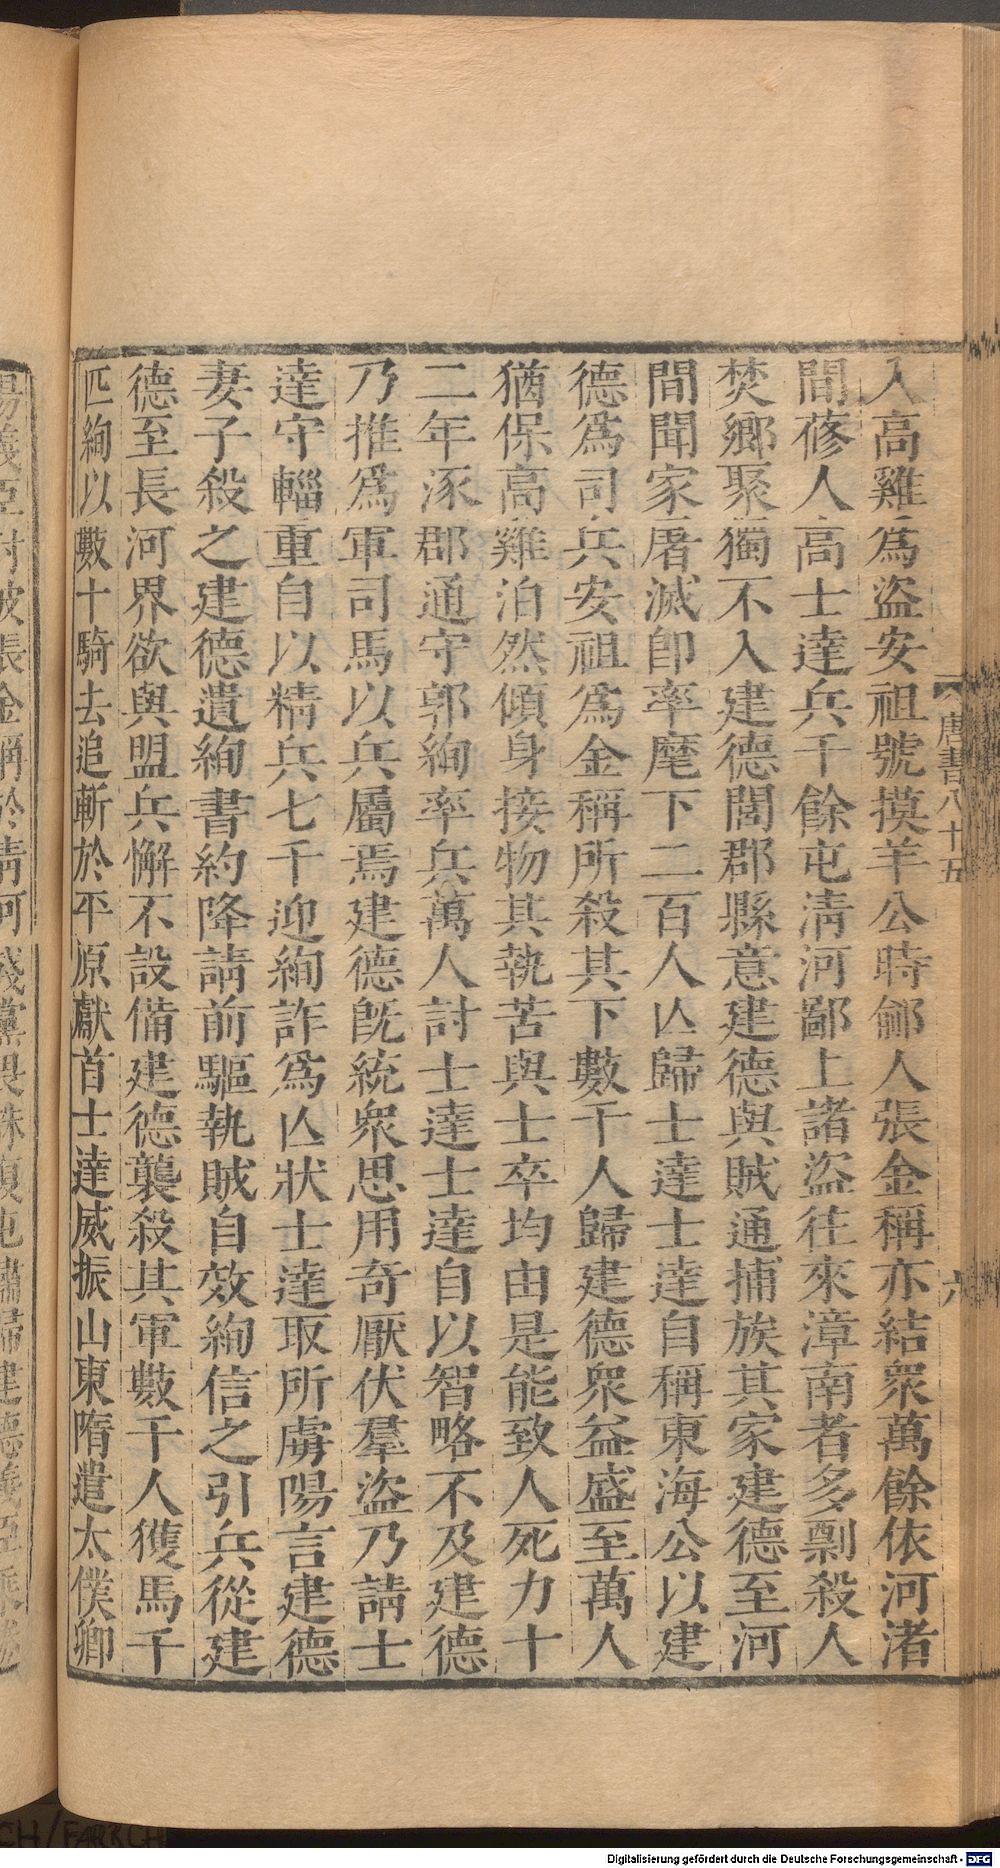 唐書八十五
六
入高雞爲盜安祖號摸羊公時鄃人張金稱亦結衆萬餘依河渚
間蓚人高士達兵千餘屯淸河鄙上諸盜往來漳南者多剽殺人
焚鄉聚獨不入建德閭郡縣意建德與賊通捕族其家建德至河
間聞家屠滅卽率麾下二百人亾歸士達士達自稱東海公以建
德爲司兵安祖爲金稱所殺其下數千人歸建德衆益盛至萬人
猶保高雞泊然傾身接物其執苦與士卒均由是能致人死力十
二年涿郡通守郭絢率兵萬人討士達士達自以智略不及建德
乃推爲軍司馬以兵屬焉建德旣統衆思用奇厭伏羣盜乃請士
達守輜重自以精兵七千迎絢詐爲亾狀士達取所虜陽言建德
妻子殺之建德遺絢書約降請前驅執賊自效絢信之引兵從建
德至長河界欲與盟兵懈不設備建德襲殺其軍數千人獲馬千
匹絢以數十騎去追斬於平原獻首士達威振山東隋遣太僕卿
張金稱於淸河殘黨畏誅復屯嘯歸建德義臣乘
Digitalisierung gefördert durch die Deutsche Forschungsgemeinschaft - DFG